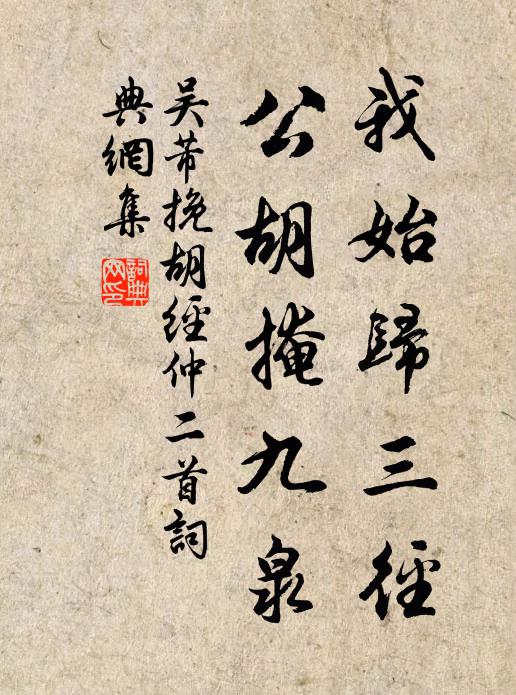 我始歸三徑
公胡掩九泉
吴芾挽胡經仲二首詞
典網集
詞典
网印